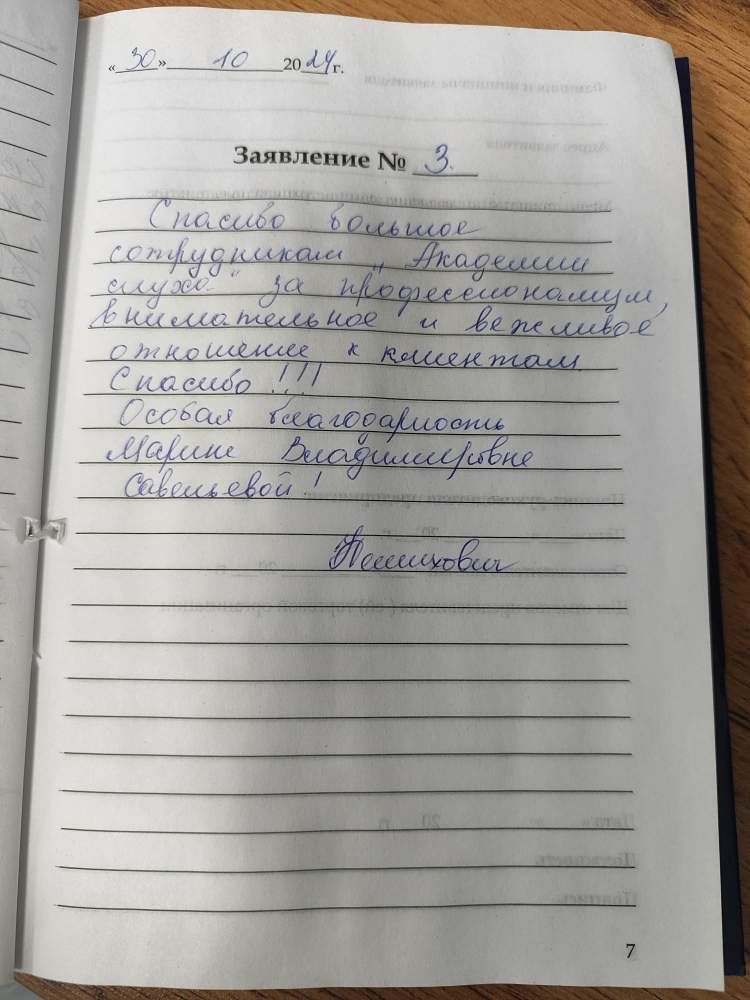 «30» 10 2024 г.
Заявление № 3.
Спасибо большое
сотрудникам „Академии
слуха" за профессионализм,
внимательное и вежливое
отношение к клиентам.
Спасибо!!!
Особая благодарность
Марине Владимировне
Савельевой!
7